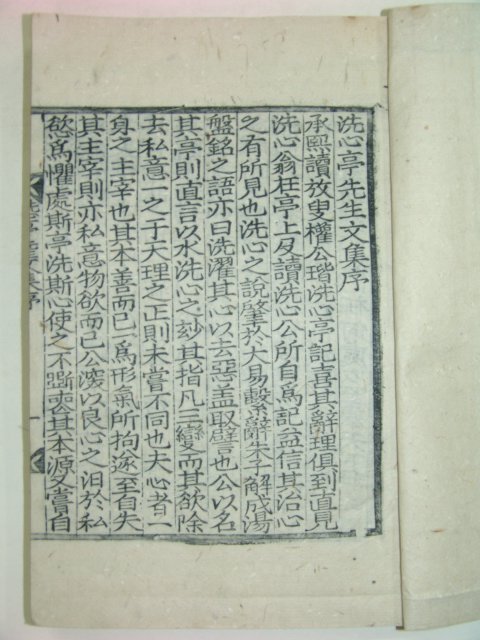 洗心亭先生文集序
承熙讀放叟權公瑎洗心亭記喜其辭理俱到直見
洗心翁在亭上及讀洗心公所自爲記益信其治心
之有所見也洗心之說肇於大易繫辭朱子解成湯
盤銘之語亦曰洗濯其心以去惡盖取譬也公以名
其亭則直言以水洗心之玅其指凡三變而其欲除
去私意一之于天理之正則未嘗不同也夫心者一
身之主宰也其本善而已爲形氣所拘遂至自失
其主宰則亦私意物欲而已公深以良心之汨於私
慾爲懼處斯亭洗斯心使之不斵喪其本源又嘗自
集序
一